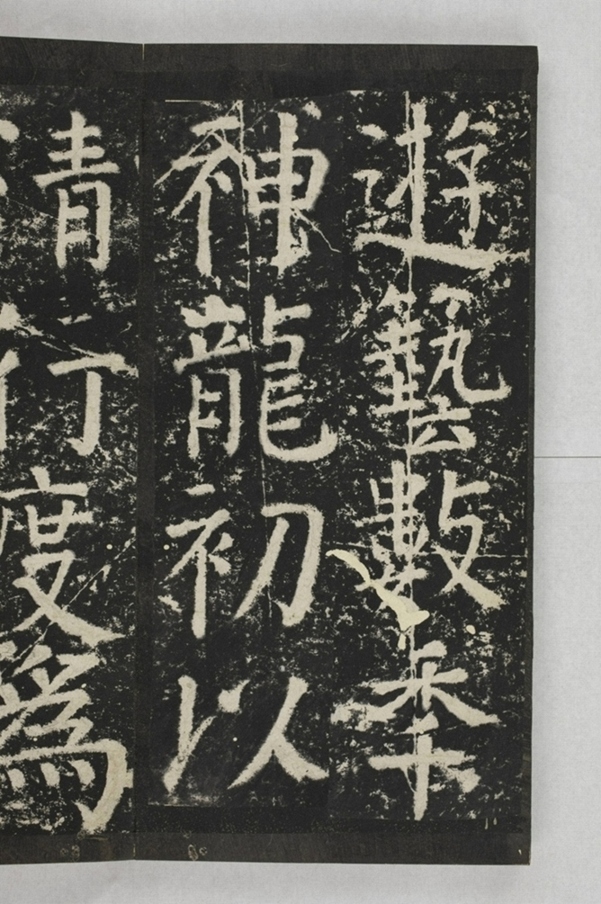 遊藝數秊
神龍初以
清行度爲